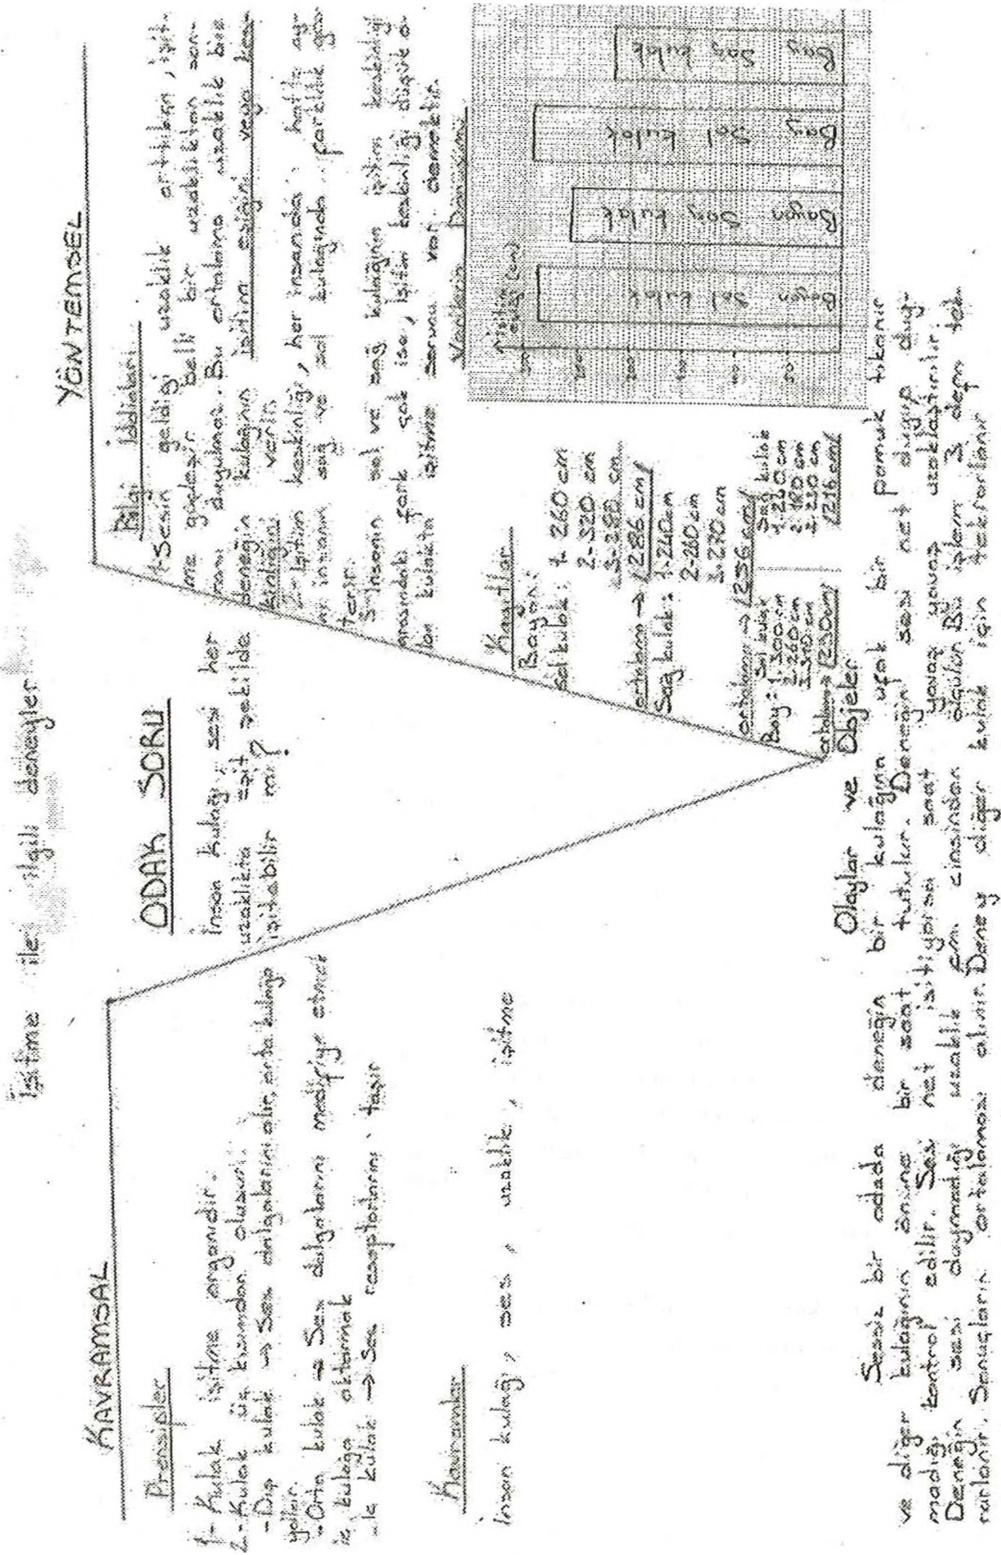 İşitme ile ilgili deneyler
KAVRAMSAL
Prensipler
1- Kulak işitme organıdır.
2- Kulak üç kısımdan oluşur.
- Dış kulak → Ses dalgalarını alır, orta kulağa
yollar.
- Orta kulak → Ses dalgalarını modifiye etmek
iç kulağa aktarmak
- İç kulak → Ses reseptörlerini taşır
Kavramlar
İnsan kulağı, ses, uzaklık, işitme
ODAK SORU
İnsan kulağı, sesi her
uzaklıkta eşit şekilde
işitebilir mi?
YÖNTEMSEL
Bilgi İddiaları
1- Sesin geldiği uzaklık arttıkça, işit-
me güçleşir belli bir uzaklıktan son-
rası duyulmaz. Bu ortalama uzaklık bize
deneğin kulağının işitim eşiğini veya kes-
kinliğini verir.
2- İşitim keskinliği, her insanda hatta ay-
nı insanın sağ ve sol kulağında farklılık gös-
terir.
3- İnsanın sol ve sağ kulağının işitim keskinliği
arasındaki fark çok ise, işitim keskinliği düşük o-
lan kulakta işitme sorunu var demektir.
Kayıtlar
Bayan:
Sol kulak: 1- 260 cm
2- 320 cm
3- 280 cm
ortalama → 286 cm
Sağ kulak: 1- 240 cm
2- 260 cm
3- 270 cm
ortalama → 256 cm
Bay: Sol kulak
1. 300 cm
2. 260 cm
3. 310 cm
ortalama → 290 cm
Sağ kulak
1. 240 cm
2. 180 cm
3. 230 cm
216 cm
Verilerin Dönüşümü
işitim
eşiği (cm)
Bayan Sol kulak
Bayan Sağ kulak
Bay Sol kulak
Bay Sağ kulak
Olaylar ve Objeler
Sessiz bir odada deneğin bir kulağının ufak bir pamuk tıkanır
ve diğer kulağının önüne bir saat tutulur. Deneğin sesi net duyup duy-
madığı kontrol edilir. Sesi net işitiyorsa saat yavaş yavaş uzaklaştırılır.
Deneğin sesi duymadığı uzaklık cm cinsinden ölçülür. Bu işlem 3 defa tek-
rarlanır. Sonuçların ortalaması alınır. Deney diğer kulak için tekrarlanır